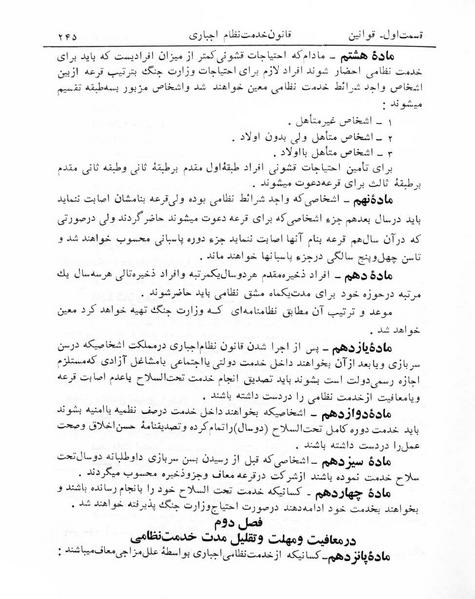 قسمت اول ـ قوانین    قانون خدمت نظام اجباری    ۲۴۵
مادهٔ هشتم ـ مادام که احتیاجات قشونی کمتر از میزان افرادیست که باید برای
خدمت نظامی احضار شوند افراد لازم برای احتیاجات وزارت جنگ بترتیب قرعه از بین
اشخاص واجد شرائط خدمت نظامی معین خواهند شد واشخاص مزبور بسه طبقه تقسیم
میشوند :
۱ ـ اشخاص غیر متأهل .
۲ ـ اشخاص متأهل ولی بدون اولاد .
۳ ـ اشخاص متأهل با اولاد .
برای تأمین احتیاجات قشونی افراد طبقهٔ اول مقدم بر طبقهٔ ثانی وطبقه ثانی مقدم
بر طبقهٔ ثالث برای قرعه دعوت میشوند .
مادهٔ نهم ـ اشخاصی که واجد شرائط نظامی بوده ولی قرعه بنامشان اصابت ننماید
باید درسال بعد هم جزء اشخاصی که برای قرعه دعوت میشوند حاضر گردند ولی درصورتی
که در آن سال هم قرعه بنام آنها اصابت ننماید جزء دوره پاسبانی محسوب خواهند شد و
تاسن چهل وپنج سالگی درجزء پاسبانها خواهند ماند .
مادهٔ دهم ـ افراد ذخیره مقدم هر دو سال یکمرتبه وافراد ذخیره تالی هر سه سال یك
مرتبه درحوزه خود برای مدت یکماه مشق نظامی باید حاضر شوند .
موعد و ترتیب آن مطابق نظامنامه‌ای که وزارت جنگ تهیه خواهد کرد معین
خواهد شد .
مادهٔ یازدهم ـ پس از اجرا شدن قانون نظام اجباری در مملکت اشخاصیکه درسن
سربازی ویا بعد از آن بخواهند داخل خدمت دولتی یا اجتماعی یا مشاغل آزادی که مستلزم
اجازه رسمی دولت است بشوند باید تصدیق انجام خدمت تحت السلاح یا عدم اصابت قرعه
ویا معافیت از خدمت نظامی را دردست داشته باشند .
مادهٔ دوازدهم ـ اشخاصیکه بخواهند داخل خدمت درصف نظمیه یا امنیه بشوند
باید خدمت دوره کامل تحت السلاح (دو سال) را تمام کرده و تصدیقنامهٔ حسن اخلاق و صحت
عمل را دردست داشته باشند .
مادهٔ سیزدهم ـ اشخاصی که قبل از رسیدن بسن سربازی داوطلبانه دو سال تحت
سلاح خدمت نموده باشند از شرکت درقرعه معاف وجزو ذخیره محسوب میگردند .
مادهٔ چهاردهم ـ کسانیکه خدمت تحت السلاح خود را بانجام رسانده باشند و
بخواهند بخدمت خود ادامه دهند درصورت احتیاج وزارت جنگ پذیرفته خواهند شد .
فصل دوم
در معافیت ومهلت وتقلیل مدت خدمت نظامی
مادهٔ پانزدهم ـ کسانیکه از خدمت نظامی اجباری بواسطهٔ علل مزاجی معاف میباشند :